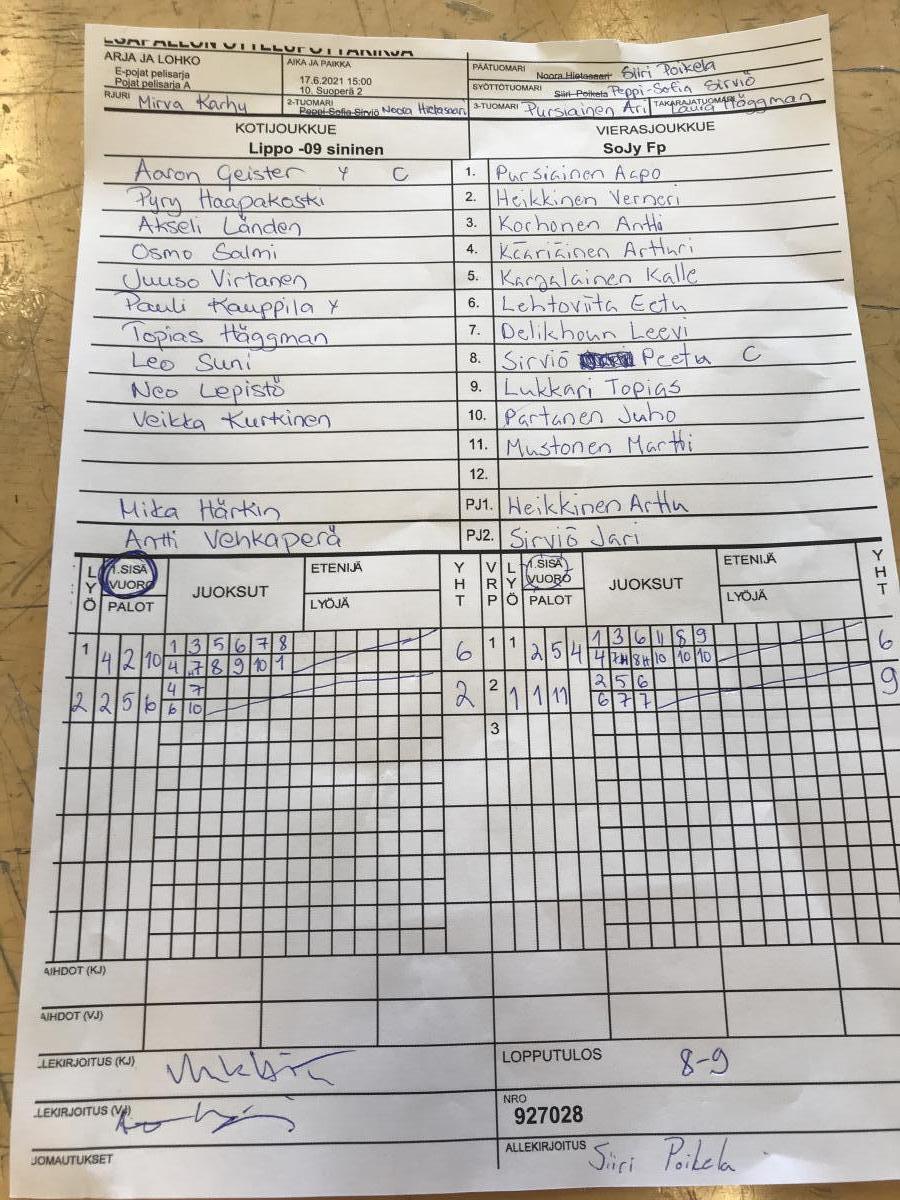 ARJA JA LOHKO
E-pojat pelisarja
Pojat pelisarja A
AIKA JA PAIKKA
17.6.2021 15:00
10. Suoperä 2
PÄÄTUOMARI Noora Hietasaari Siiri Poikela
SYÖTTÖTUOMARI Siiri Poikela Peppi-Sofia Sirviö
RJURI Mirva Karhu
2-TUOMARI Peppi-Sofia Sirviö Noora Hietasaari
3-TUOMARI Pursiainen Ari
TAKARAJATUOMARI Laura Häggman
KOTIJOUKKUE
Lippo -09 sininen
VIERASJOUKKUE
SoJy Fp
Aaron Geister Y C 1. Pursiainen Aapo
Pyry Haapakoski 2. Heikkinen Verneri
Akseli Länden 3. Korhonen Antti
Osmo Salmi 4. Kääriäinen Artturi
Juuso Virtanen 5. Karjalainen Kalle
Pauli Kauppila Y 6. Lehtoviita Eetu
Topias Häggman 7. Delikhoun Leevi
Leo Suni 8. Sirviö Peetu C
Neo Lepistö 9. Lukkari Topias
Veikka Kurkinen 10. Partanen Juho
11. Mustonen Martti
12.
Mika Härkin PJ1. Heikkinen Arttu
Antti Vehkaperä PJ2. Sirviö Jari
LYÖ 1.SISÄ VUORO PALOT JUOKSUT ETENIJÄ LYÖJÄ YHT VRP LYÖ 1.SISÄ VUORO PALOT JUOKSUT ETENIJÄ LYÖJÄ YHT
1 4 2 10 1 3 5 6 7 8 6 1 1 2 5 4 1 3 6 11 8 9 6
4 7 8 9 10 1 4 7H 8H 10 10 10
2 2 5 6 4 7 2 2 1 1 11 2 5 6 9
6 10 6 7 7
3
AIHDOT (KJ)
AIHDOT (VJ)
LEKIRJOITUS (KJ)
LOPPUTULOS 8-9
LEKIRJOITUS (VJ)
NRO
927028
JOMAUTUKSET
ALLEKIRJOITUS Siiri Poikela